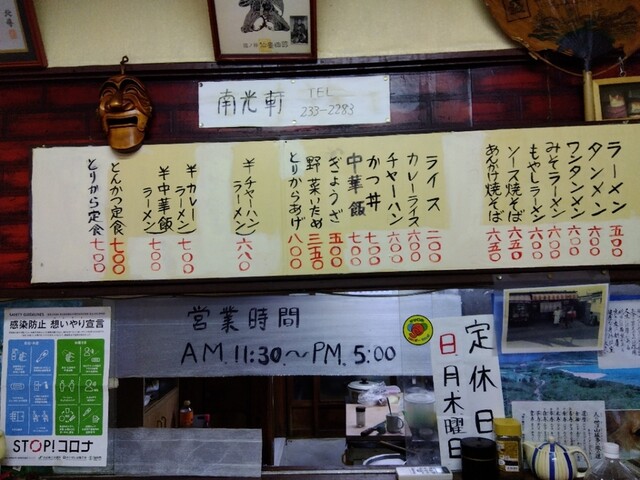 南光軒 TEL
233-2283
ラーメン 五〇〇
タンメン 六〇〇
ワンタンメン 六〇〇
みそラーメン 六〇〇
もやしラーメン 六〇〇
ソース焼そば 六五〇
あんかけ焼そば 六五〇
ライス 二〇〇
カレーライス 六〇〇
チャーハン 六〇〇
かつ丼 七〇〇
中華飯 七〇〇
ぎょうざ 五〇〇
野菜いため 三五〇
とりからあげ 八〇〇
半チャーハン
ラーメン 六八〇
半カレー
ラーメン 七〇〇
半中華飯
ラーメン 七〇〇
とんかつ定食 七〇〇
とりから定食 七〇〇
営業時間
AM.11:30〜PM.5:00
定休日
日月木曜日
感染防止 想いやり宣言
STOP!コロナ